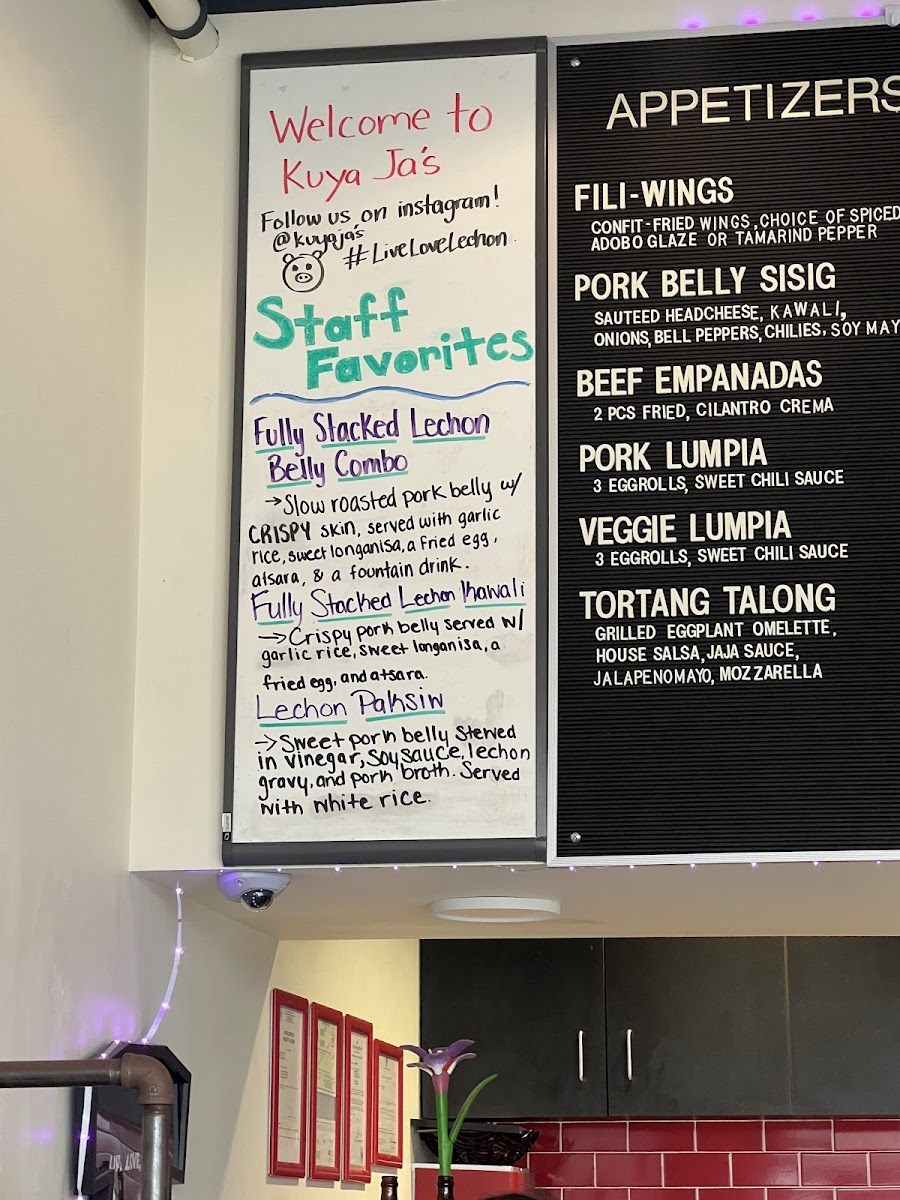 Welcome to
Kuya Ja's
Follow us on instagram!
@kuyaja's
#LiveLoveLechon
Staff
Favorites
Fully Stacked Lechon
Belly Combo
→Slow roasted pork belly w/
CRISPY skin, served with garlic
rice, sweet longanisa, a fried egg,
atsara, & a fountain drink.
Fully Stacked Lechon Kawali
→Crispy pork belly served w/
garlic rice, sweet longanisa, a
fried egg, and atsara.
Lechon Paksiw
→Sweet pork belly Stewed
in vinegar, soy sauce, lechon
gravy, and pork broth. Served
with white rice.
APPETIZERS
FILI-WINGS
CONFIT-FRIED WINGS, CHOICE OF SPICED
ADOBO GLAZE OR TAMARIND PEPPER
PORK BELLY SISIG
SAUTEED HEADCHEESE, KAWALI,
ONIONS, BELL PEPPERS, CHILIES, SOY MAY
BEEF EMPANADAS
2 PCS FRIED, CILANTRO CREMA
PORK LUMPIA
3 EGGROLLS, SWEET CHILI SAUCE
VEGGIE LUMPIA
3 EGGROLLS, SWEET CHILI SAUCE
TORTANG TALONG
GRILLED EGGPLANT OMELETTE,
HOUSE SALSA, JAJA SAUCE,
JALAPENOMAYO, MOZZARELLA